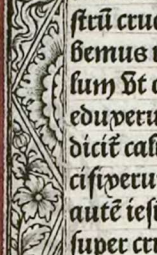 ſtrū cruc
bemus n
lum Vt o
eduxeru
dicit̄ cal
cifixeru
autē ieſ
ſuper cr